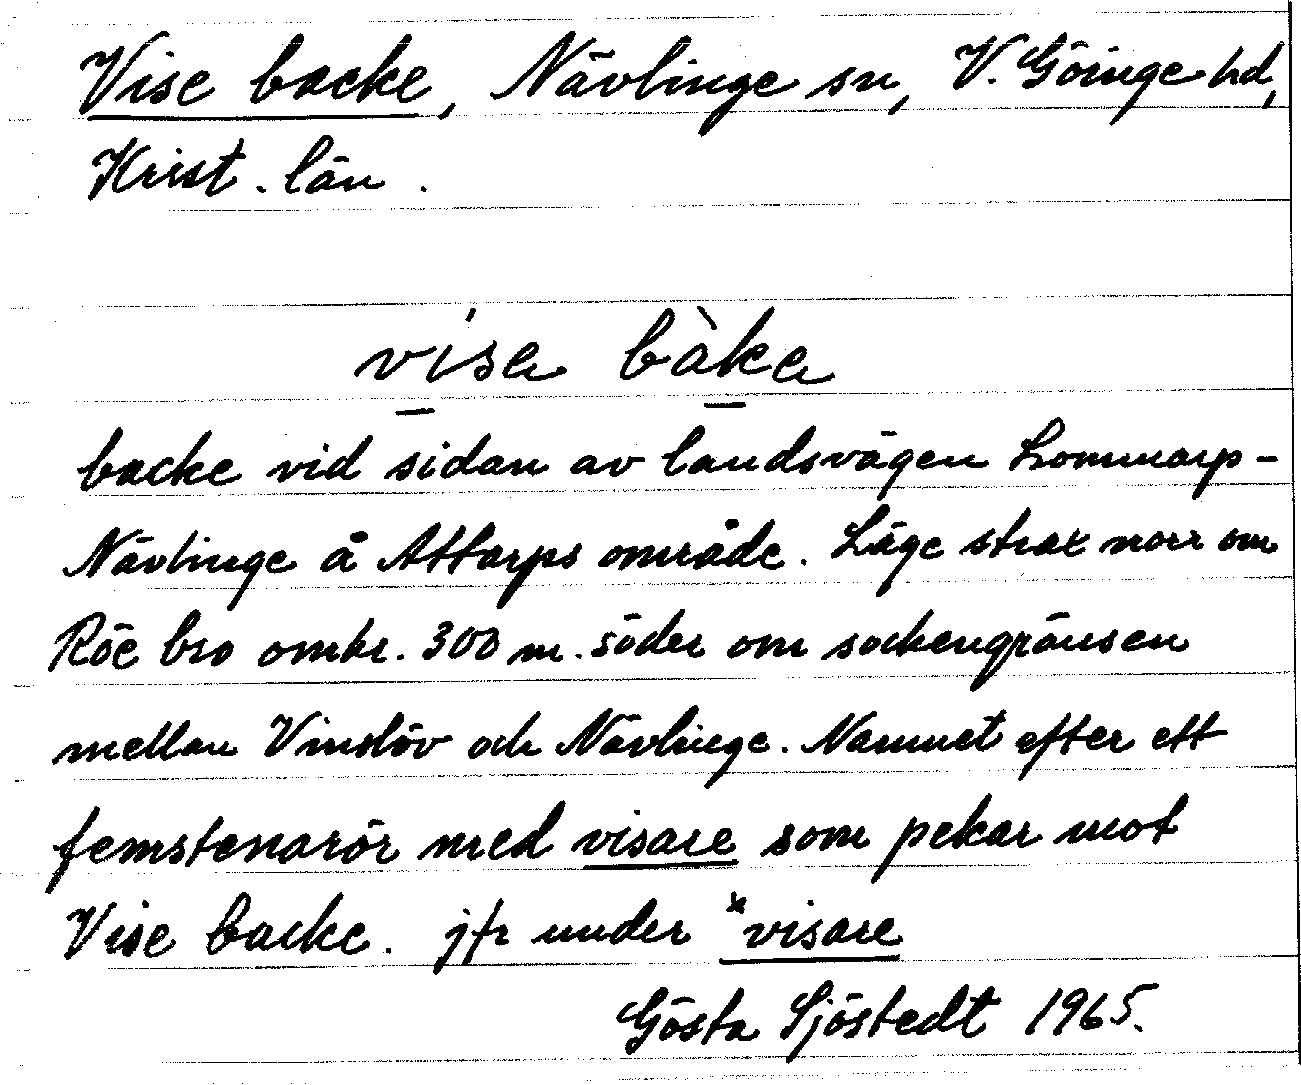 Vise backe, Nävlinge sn, V. Göinge hd,
Krist. län.
vísa bàka
backe vid sidan av landsvägen Lommarp-
Nävlinge å Attarps område. Läge strax norr om
Röe bro omkr. 300 m. söder om sockengränsen
mellan Vinslöv och Nävlinge. Namnet efter ett
femstenarör med visare som pekar mot
Vise backe. jfr under *visare
Gösta Sjöstedt 1965.